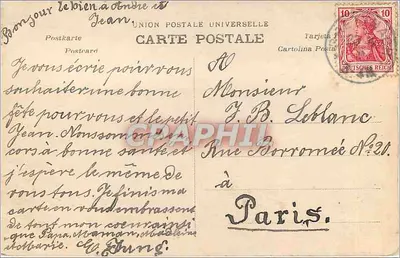 Bonjour le bien à André et
Jean
UNION POSTALE UNIVERSELLE
CARTE POSTALE
Postkarte
Postcard
Tarjeta
Cartolina Postal
10 10
DEUTSCHES REICH
Je vous écrie pour vous
souhaiter une bonne
fête pour vous et le petit
Jean. Nous som
cors à bonne santé et
j'espère le même de
vous tous. Je finis ma
carte en vous embrassent
de tout mon coeur ainsi
que Papa, Maman, Madeleine
et Marie. Jung
A
Monsieur
J. B. Leblanc
Rue Borromée No 20.
à
Paris.
CRAPHIL